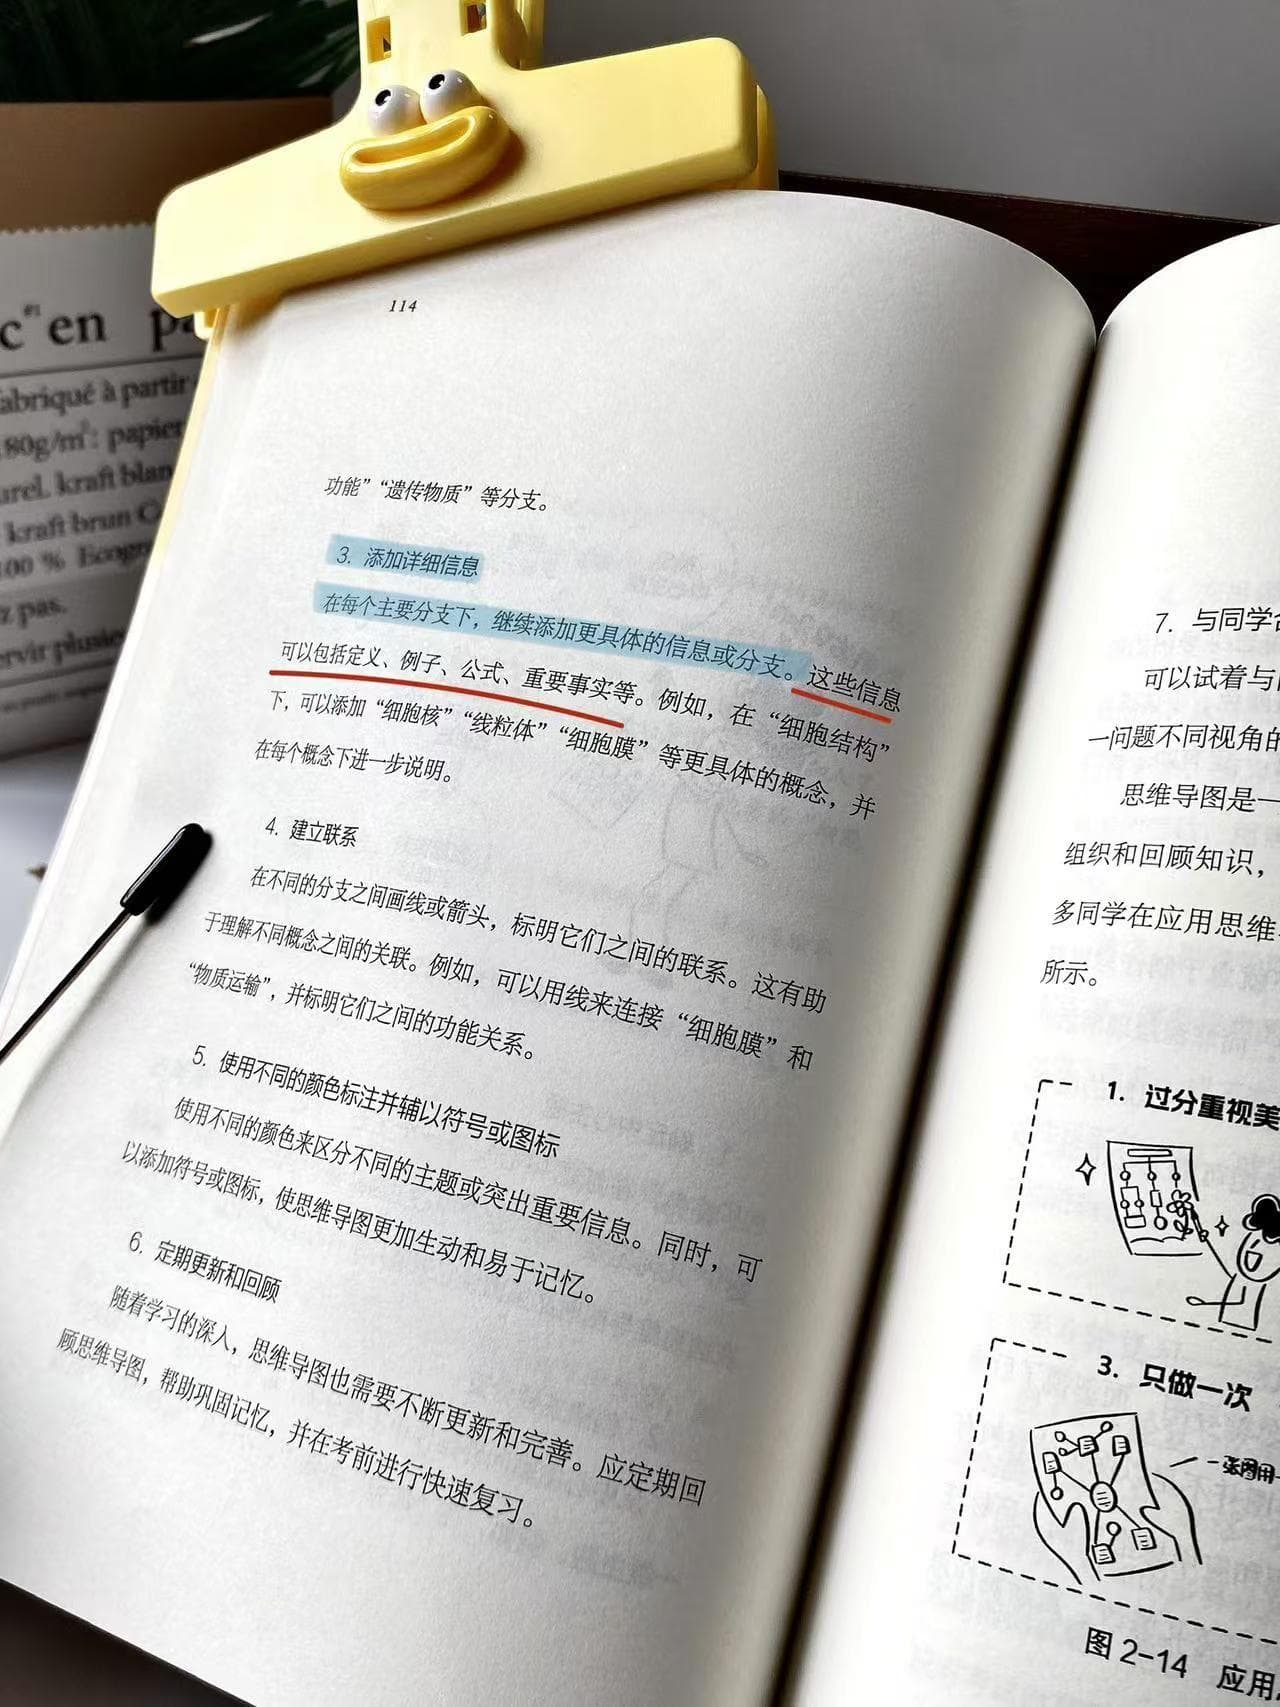 c'en pa
fabriqué à partir
80g/m²: papier
urel. kraft blan
kraft brun
100 %
z pas.
ervir plusie
114
功能”“遗传物质”等分支。
3. 添加详细信息
在每个主要分支下，继续添加更具体的信息或分支。这些信息
可以包括定义、例子、公式、重要事实等。例如，在“细胞结构”
下，可以添加“细胞核”“线粒体”“细胞膜”等更具体的概念，并
在每个概念下进一步说明。
4. 建立联系
在不同的分支之间画线或箭头，标明它们之间的联系。这有助
于理解不同概念之间的关联。例如，可以用线来连接“细胞膜”和
“物质运输”，并标明它们之间的功能关系。
5. 使用不同的颜色标注并辅以符号或图标
使用不同的颜色来区分不同的主题或突出重要信息。同时，可
以添加符号或图标，使思维导图更加生动和易于记忆。
6. 定期更新和回顾
随着学习的深入，思维导图也需要不断更新和完善。应定期回
顾思维导图，帮助巩固记忆，并在考前进行快速复习。
7. 与同学合
可以试着与
一问题不同视角的
思维导图是一
组织和回顾知识，
多同学在应用思维
所示。
1. 过分重视美
3. 只做一次
图 2-14 应用